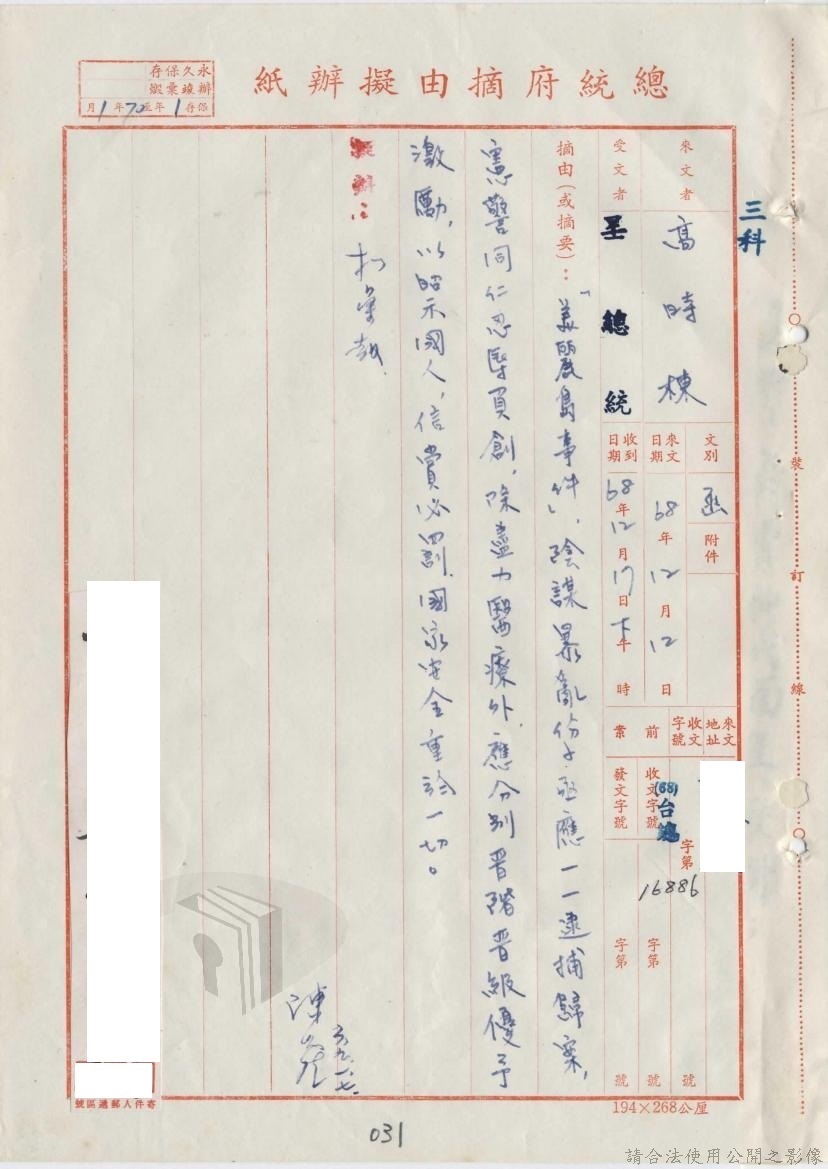 總統府摘由擬辦紙
永久保存
辦竣彙繳
保存1年至70年1月
三科
來文者
高時棟
受文者
呈 總統
文別
函
附件
來文日期
68年12月12日
收到日期
68年12月17日下午 時
來文地址
收文字號
前案
收文字號
(68)台總
字第
16886
號
發文字號
字第 號
字第 號
摘由(或摘要):「美麗島事件」,陰謀暴亂份子亟應一一逮捕歸案,
憲警同仁忍辱負創,除盡力醫療外,應分別晉階晉級優予
激勵,以昭示國人,信賞必罰,國家安全重於一切。
擬辦:
擬彙報
陳
六九、一、七、
裝訂線
寄件人郵遞區號
194×268公厘
031
請合法使用公開之影像